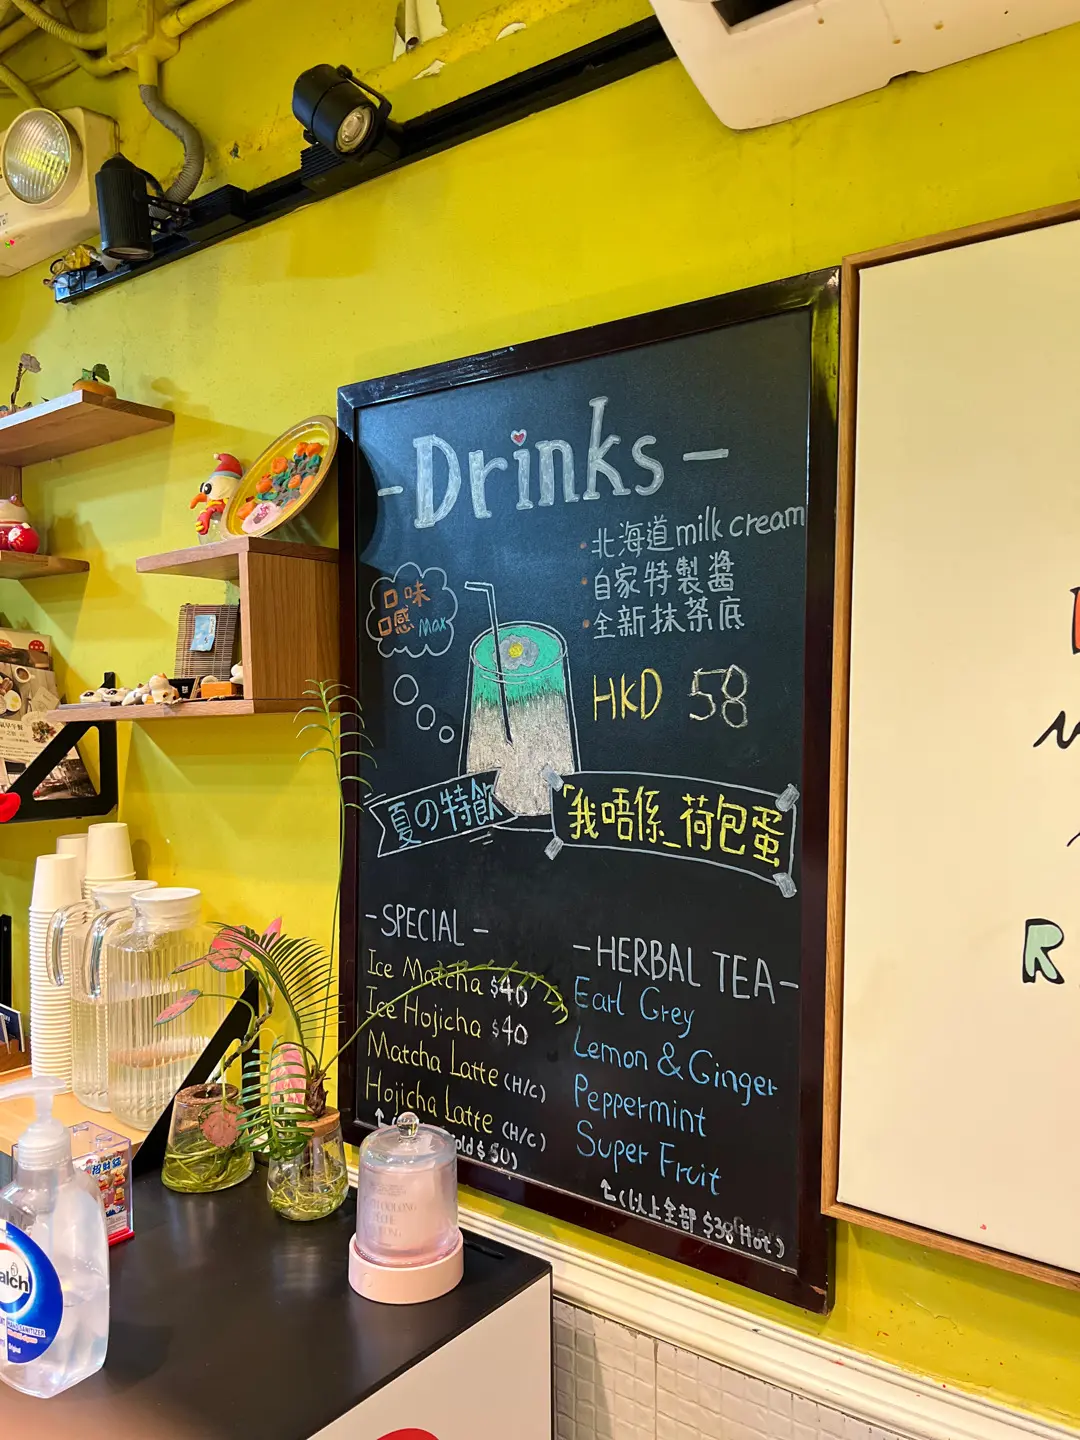 -Drinks-
北海道milk cream
自家特製醬
全新抹茶底
口味
口感 Max
HKD 58
夏の特飲
「我唔係_荷包蛋
-SPECIAL-
Ice Matcha $40
Ice Hojicha $40
Matcha Latte (H/C)
Hojicha Latte (H/C)
old $50)
-HERBAL TEA-
Earl Grey
Lemon & Ginger
Peppermint
Super Fruit
(以上全部 $38 Hot)
R
alch